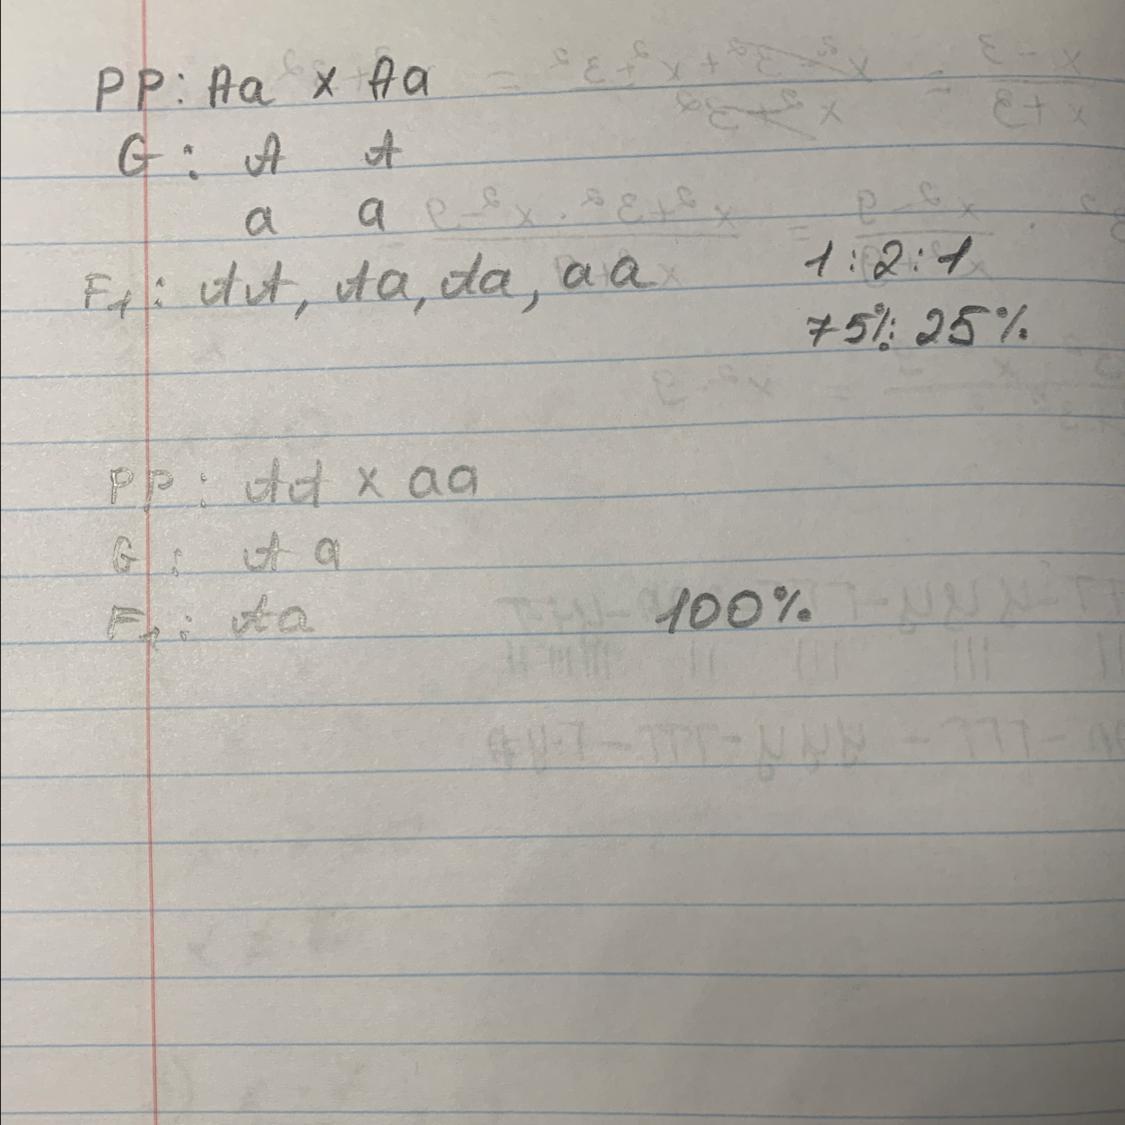 PP: Aa x Aa
G: A A
a a
F1: AA, Aa, Aa, aa 1:2:1
75%: 25%
PP: AA x aa
G: A a
F1: Aa 100%